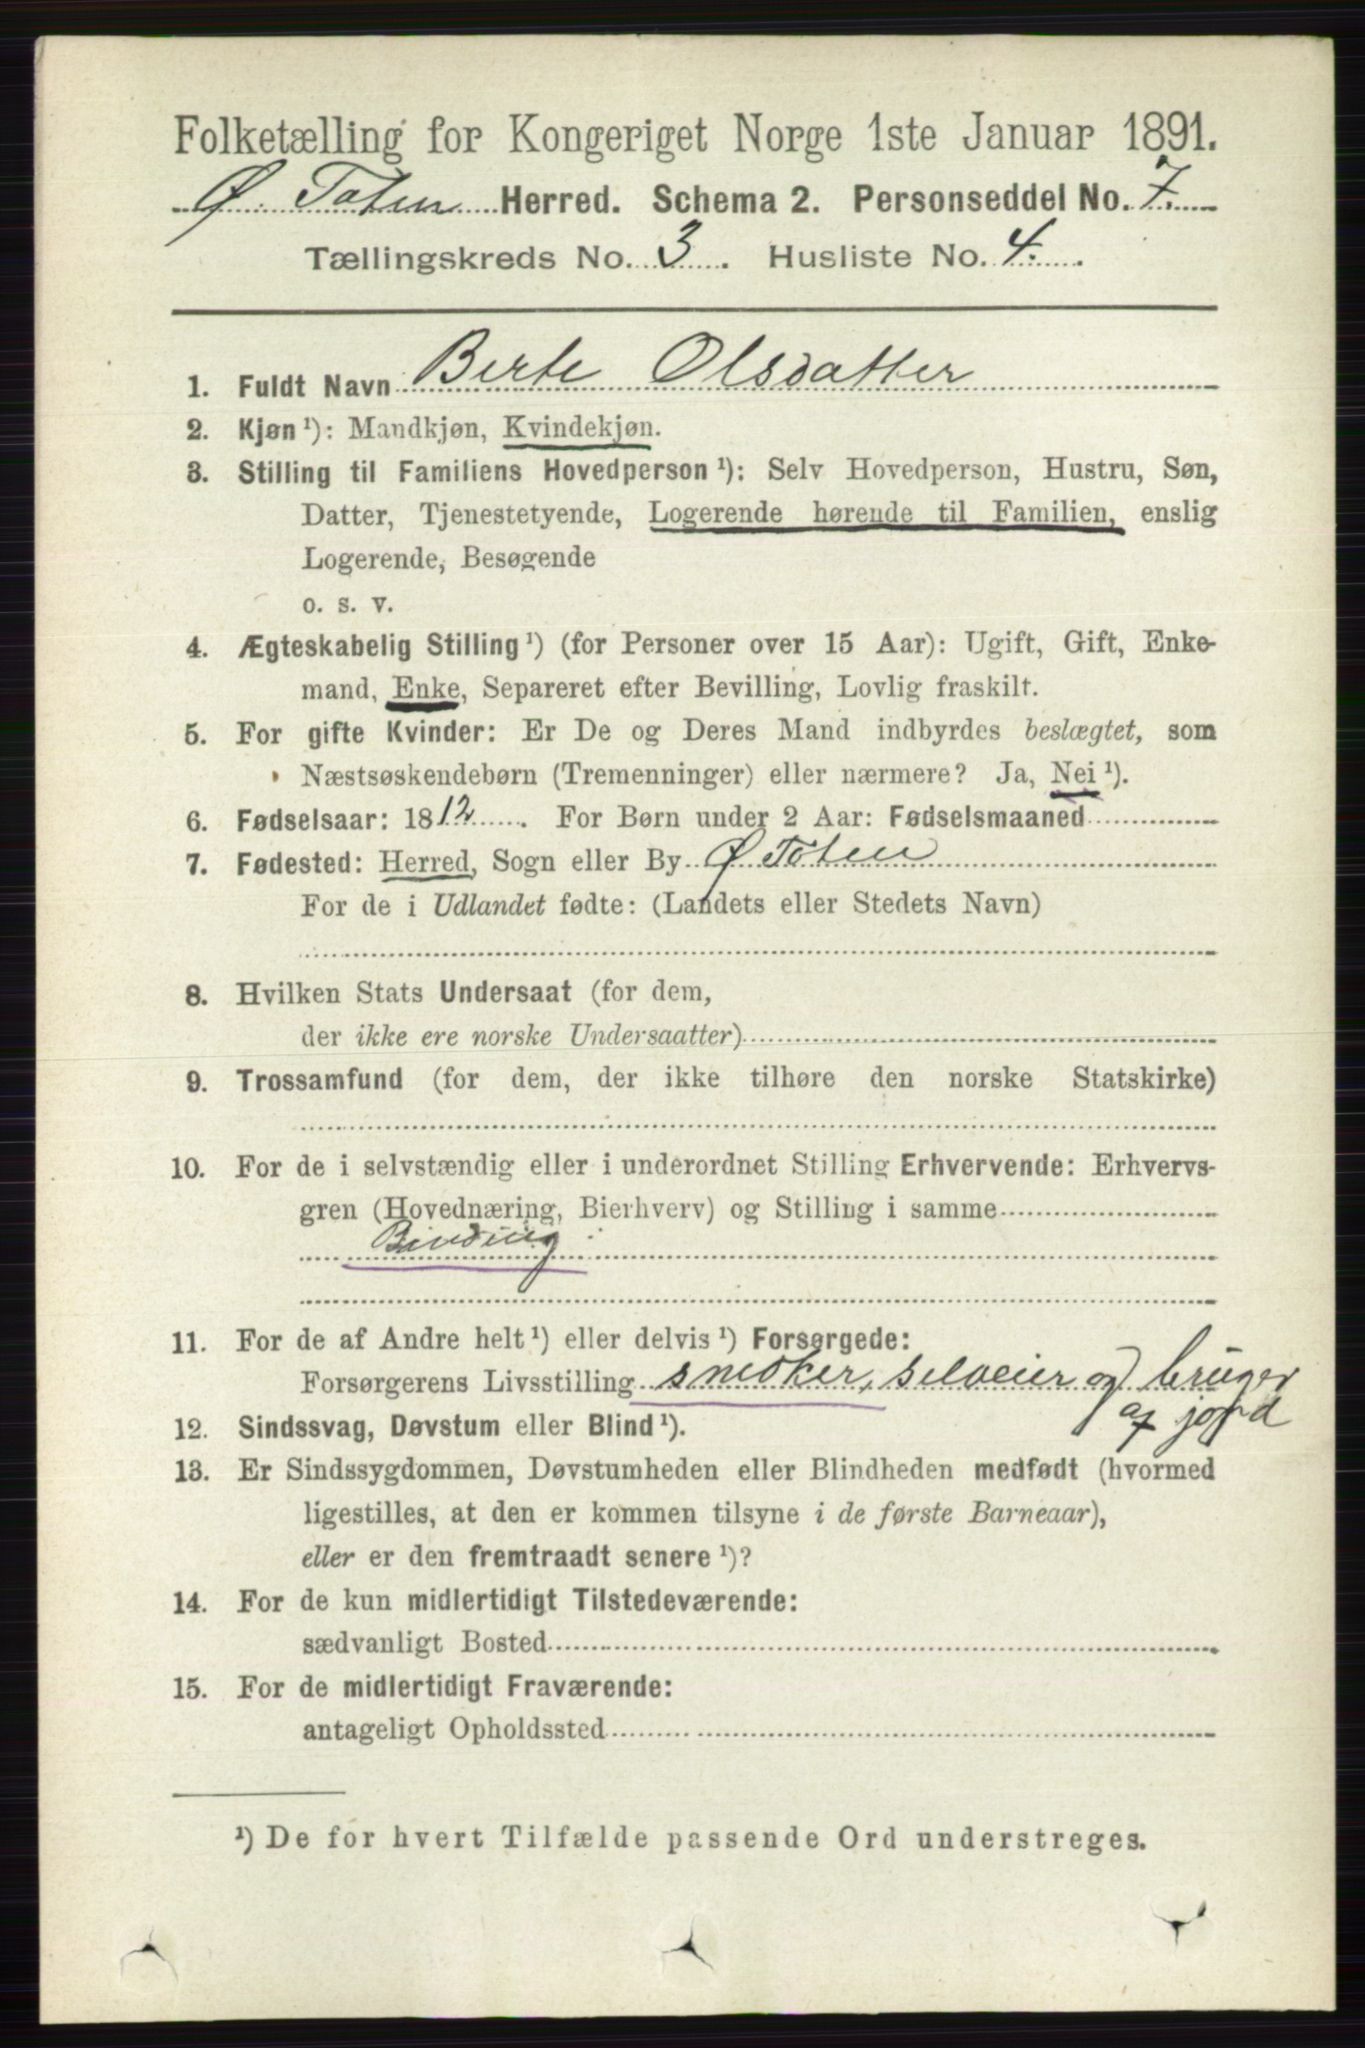 Folketælling for Kongeriget Norge 1ste Januar 1891.
Ø. Toten Herred. Schema 2. Personseddel No. 7.
Tællingskreds No. 3. Husliste No. 4.
1. Fuldt Navn Berte Olsdatter
2. Kjøn ¹): Mandkjøn, Kvindekjøn.
3. Stilling til Familiens Hovedperson ¹): Selv Hovedperson, Hustru, Søn,
Datter, Tjenestetyende, Logerende hørende til Familien, enslig
Logerende, Besøgende
o. s. v.
4. Ægteskabelig Stilling ¹) (for Personer over 15 Aar): Ugift, Gift, Enke-
mand, Enke, Separeret efter Bevilling, Lovlig fraskilt.
5. For gifte Kvinder: Er De og Deres Mand indbyrdes beslægtet, som
Næstsøskendebørn (Tremenninger) eller nærmere? Ja, Nei ¹).
6. Fødselsaar: 1812. For Børn under 2 Aar: Fødselsmaaned
7. Fødested: Herred, Sogn eller By Ø Toten
For de i Udlandet fødte: (Landets eller Stedets Navn)
8. Hvilken Stats Undersaat (for dem,
der ikke ere norske Undersaatter)
9. Trossamfund (for dem, der ikke tilhøre den norske Statskirke)
10. For de i selvstændig eller i underordnet Stilling Erhvervende: Erhvervs-
gren (Hovednæring, Bierhverv) og Stilling i samme
Binding
11. For de af Andre helt ¹) eller delvis ¹) Forsørgede:
Forsørgerens Livsstilling snedker, selveier og bruger
af jord
12. Sindssvag, Døvstum eller Blind ¹).
13. Er Sindssygdommen, Døvstumheden eller Blindheden medfødt (hvormed
ligestilles, at den er kommen tilsyne i de første Barneaar),
eller er den fremtraadt senere ¹)?
14. For de kun midlertidigt Tilstedeværende:
sædvanligt Bosted
15. For de midlertidigt Fraværende:
antageligt Opholdssted
¹) De for hvert Tilfælde passende Ord understreges.